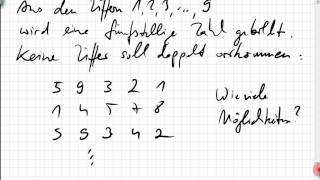 Aus den Ziffern 1, 2, 3, ..., 9
wird eine fünfstellige Zahl gebildet.
Keine Ziffer soll doppelt vorkommen.
5 9 3 2 1
1 4 5 7 8 Wie viele
5 9 3 4 2 Möglichkeiten?